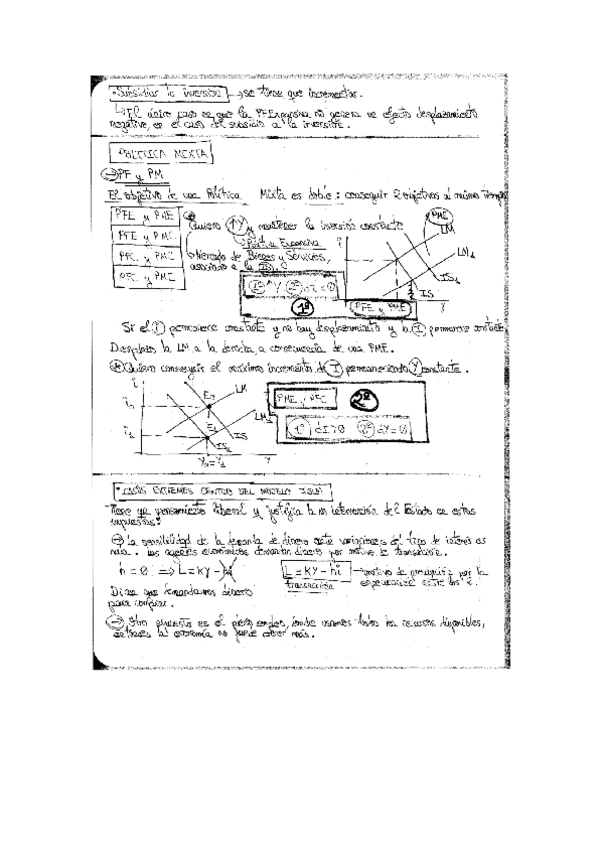 • Subsidiar la inversión → se tiene que incrementar.
↳ El único caso en que la PFExpansiva no genera un efecto desplazamiento
negativo, es el caso del subsidio a la inversión.
POLÍTICA MIXTA
→ PF y PM
El objetivo de una Política Mixta es doble: conseguir 2 objetivos al mismo tiempo
PFE y PME
PFE y PMC
PFC y PME
PFC y PMC
Quiero ↑Y y mantener la inversión constante
Política Expansiva
↳ Mercado de Bienes y Servicios,
asociado a la IS.
1º ↑Y 2º dI = 0
1º
i
PME
LM
LM₁
IS₁
IS
Y
PFE y PME
Si el i permanece constante y no hay desplazamiento y la I permanece constante,
Desplazo la LM a la derecha, a consecuencia de una PME.
Quiero conseguir el máximo incremento de I permaneciendo Y constante.
i
i₀
i₁
E₀
E₁
LM
LM₁
IS
IS₁
Y₀=Y₁
Y
PME y PFC
2º
1º dI>0 2º dY=0
• CASOS EXTREMOS DENTRO DEL MODELO IS-LM
Tiene un pensamiento liberal y justifica la no intervención del Estado en estos
supuestos:
→ La sensibilidad de la demanda de dinero ante variaciones del tipo de interés es
nula. Los agentes económicos demandan dinero por motivo de transacción.
h = 0 ⇒ L = kY - hi
L = kY - hi
transacción
→ motivo de precaución por la
especulación
Dice que demandamos dinero
para comprar.
→ Otro supuesto es el pleno empleo, donde usamos todos los recursos disponibles,
entonces la economía no puede crecer más.